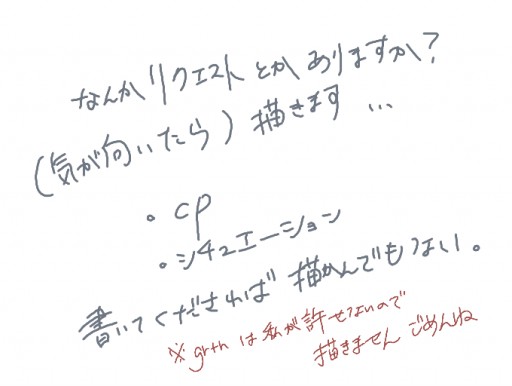 なんかリクエストとかありますか?
(気が向いたら)描きます…
・cp
・シチュエーション
書いてくだされば描かんでもない。
※grthは私が許せないので
描きませんごめんね